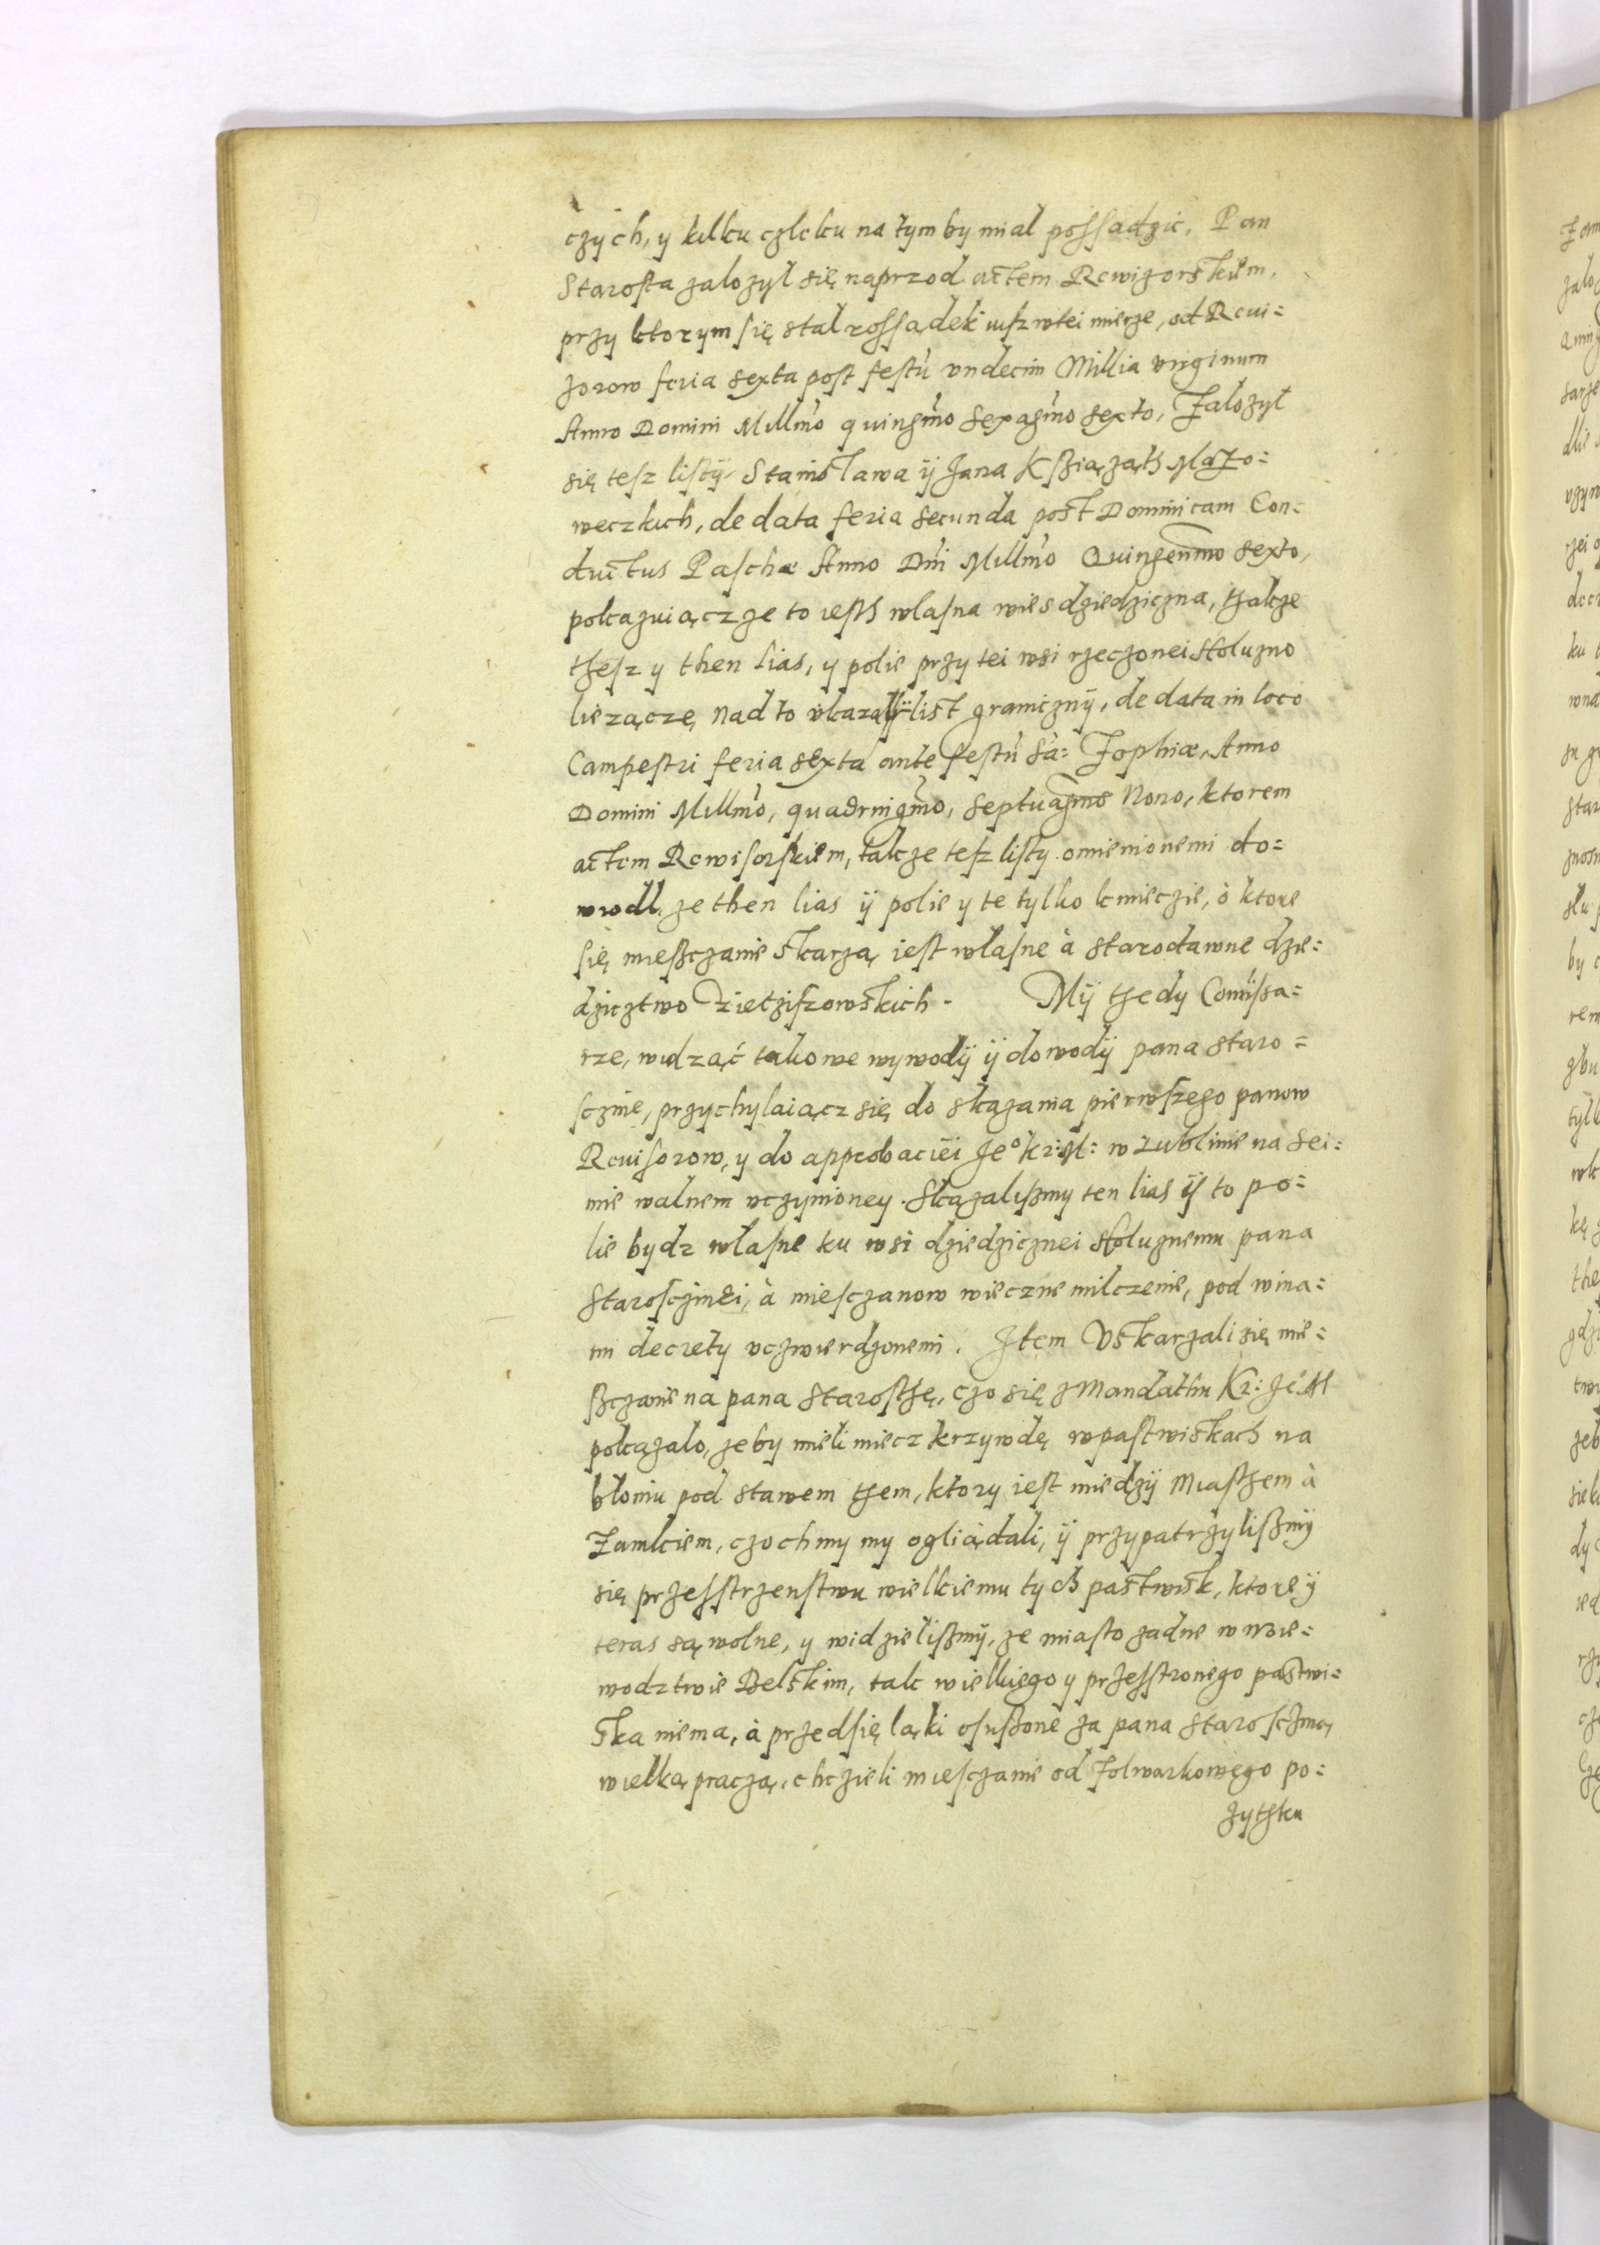 czych, y kilku czleku na tym by mial possadzic. Pan
Starosta zalozyl się naprzod actem Rewizorskiem,
przy ktorym się stal rossądek iusz w tei mierze, od Rewi=
zorow feria sexta post festu undecim Millia virginum
Anno Domini Millmo quingmo sexagmo sexto, Zalozyl
się tesz listÿ Stanislawa ÿ Jana Ksziąząth Mazo=
weczkich, de data feria secunda post Dominicam Con=
ductus Paschæ Anno Dni Millmo Quingenmo sexto,
pokazuiącz ze to iesth wlasna wies dziedziczna, thakze
thesz y then lias, y polie przy tei wsi rzeczonei Stoluzno
liezącze, nad to ukazal list granicznÿ, de data in loco
Campestri feria sexta ante festu Sa: Zophiæ, Anno
Domini Millmo, quadringmo, septuagmo Nono, ktorem
actem Rewisorskiem, takze tesz listy omienionemi do=
wodl ze then lias ÿ polie y te tylko kmieczie, ò ktore
się miesczanie skarzą iest wlasne à starodawne dzie=
dzicztwo Zietziszowskich. Mÿ thedy Comissa=
rze, widząć takowe wywodÿ ÿ dowodÿ pana staro=
sczine, przychylaiącz się do skazania pierwszego panow
Rewisorow, y do approbaciei Jeo kr: M: w Lublinie na Sei=
mie walnem uczynioney. Skazaliszmy ten lias ÿ to po=
lie bydz wlasne ku wsi dziedzicznei Stoluznemu pana
Staroscinei, à miesczanow wieczne milczenie, pod wina=
mi decrety uczwierdzonemi. Item Uskarzali się mie=
szczanie na pana Starosthę, czo się z Mandathu Kr: Je M
pokazalo, zeby mieli miecz krzywdę w pastwiskach na
bloniu pod stawem them, ktory iest miedzÿ Miasthem à
Zamkiem, czochmy my ogliądali, ÿ przypatrzyliszmÿ
się przesstrzenstwu wielkiemu tych pastwisk, ktore ÿ
teras są wolne, y widzieliszmÿ, ze miasto zadne w woie=
wodztwie Belskim, tak wielkiego y przesstronego pastwi=
ska niema, à przedsię ląki osuszone za pana staroscziną,
wielką praczą, chczieli miesczanie od folwarkowego po=
zythku